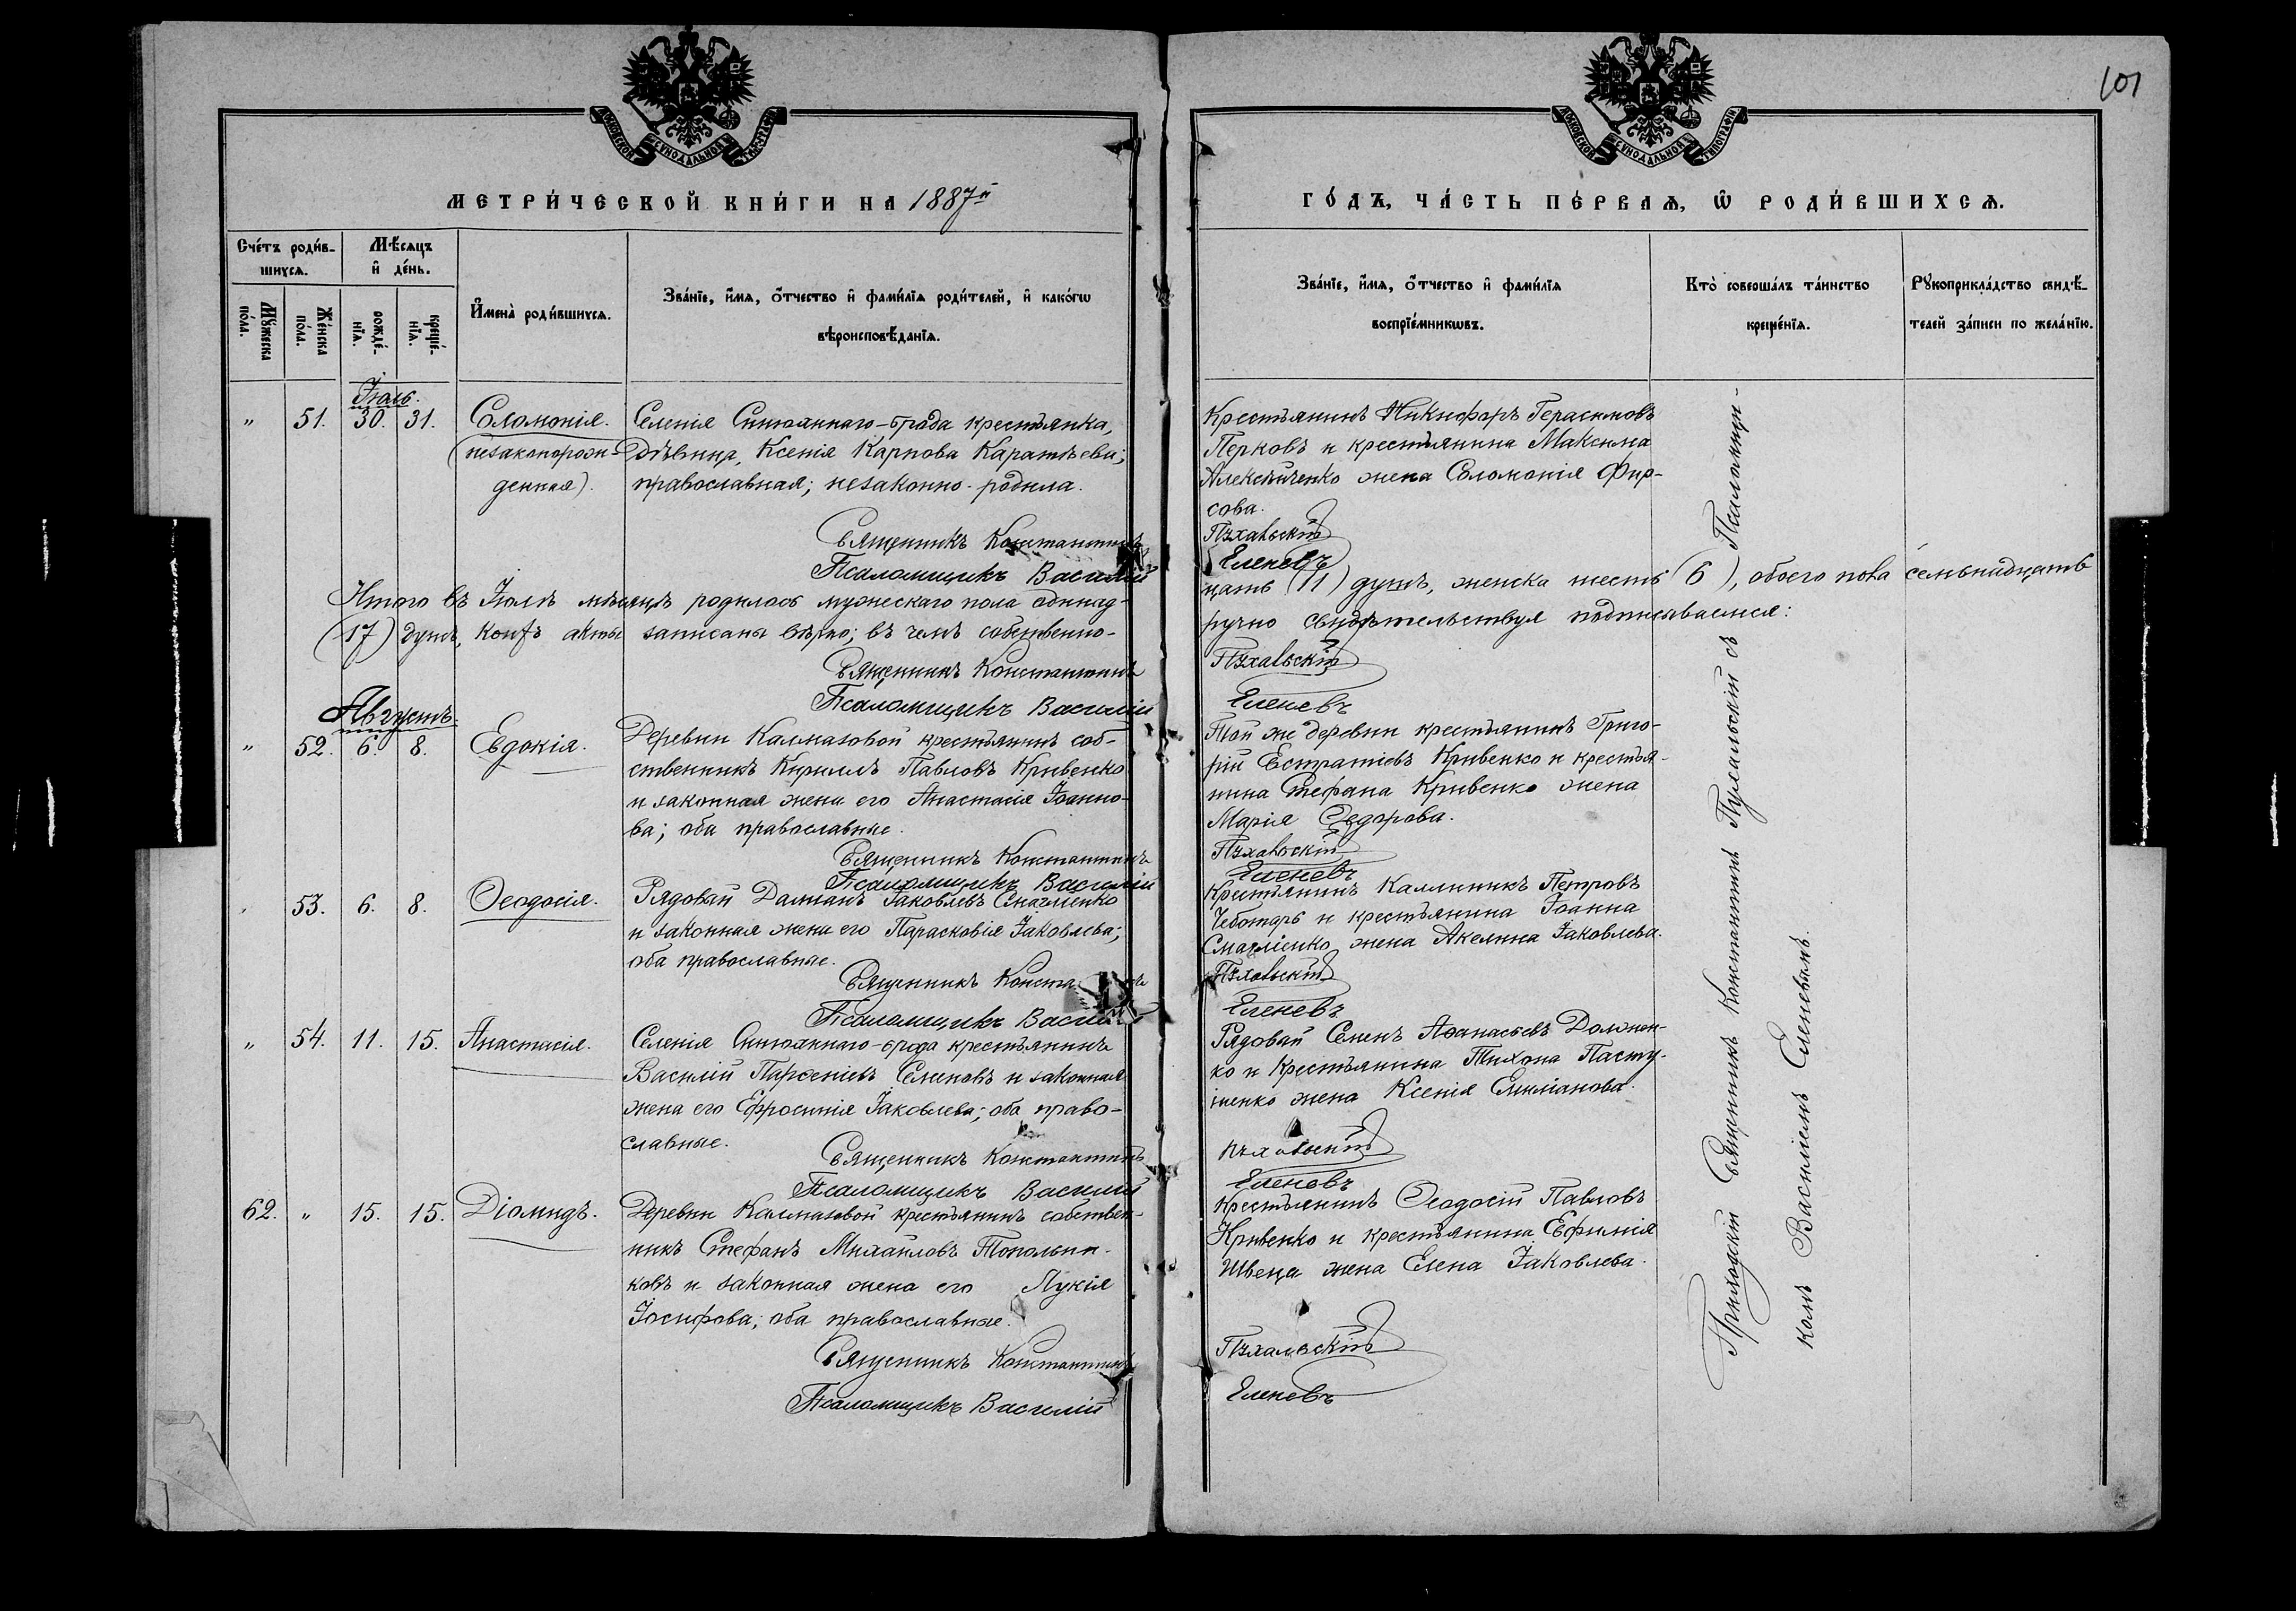 101
МОСКОВСКОЙ СѴНОДАЛЬНОЙ ТИПОГРАФІИ
МОСКОВСКОЙ СѴНОДАЛЬНОЙ ТИПОГРАФІИ
МЕТРИ́ЧЕСКОЙ КНИ́ГИ НА 1887й
ГО́ДЪ, ЧА́СТЬ ПЕ́РВАѦ, Ѡ҆ РОДИ́ВШИХСѦ.
Сче́тъ роди́в-
шихсѧ.
Мѣ́сѧцъ
и҆ де́нь.
Мꙋ́жеска
по́ла.
Же́нска
по́ла.
рожде́-
нїѧ.
креще́-
нїѧ.
И҆мена̀ роди́вшихсѧ.
Зва́нїе, и҆́мѧ, ѻ҆́тчество и҆ фами́лїѧ роди́телей, и҆ како́гѡ
вѣроисповѣ́данїѧ.
Зва́нїе, и҆́мѧ, ѻ҆́тчество и҆ фами́лїѧ
воспрїе́мникѡвъ.
Кто̀ соверша́лъ та́инство
креще́нїѧ.
Рꙋкоприкла́дство свидѣ́-
телей за́писи по жела́нїю.
Іюль.
" 51. 30. 31. Соломонія.
(незаконорож-
денная).
Селенія Синюхинаго-Брода крестьянка,
дѣвица, Ксенія Карпова Каратѣева;
православная; незаконно-родила.
Священникъ Константинъ
Псаломщикъ Василій
Крестьянинъ Никифоръ Герасимовъ
Перковъ и крестьянина Максима
Алексѣйченко жена Соломонія Фир-
сова.
Пухальскій
Еленевъ
Итого въ Іюлѣ мѣсяцѣ родилось мужескаго пола одиннад-
цать (11) душъ, женска шесть (6), обоего пола семьнадцать
(17) душъ, коихъ акты записаны вѣрно; въ чемъ собственно-
ручно свидѣтельствуя подписываемся:
Священникъ Константинъ
Псаломщикъ Василій
Пухальскій
Еленевъ
Августъ.
" 52. 6. 8. Евдокія.
Деревни Калмазовой крестьянинъ соб-
ственникъ Кириллъ Павловъ Кривенко
и законная жена его Анастасія Іоанно-
ва; оба православные.
Священникъ Константинъ
Псаломщикъ Василій
Той же деревни крестьянинъ Григо-
рій Естратіевъ Кривенко и крестья-
нина Стефана Кривенко жена
Марія Сидорова.
Пухальскій
Еленевъ
53. 6. 8. Ѳеодосія.
Рядовой Даміанъ Іаковлевъ
и законная жена его Парасковія Іаковлева;
оба православные.
Священникъ
Псаломщикъ Василій
Крестьянинъ Каллиникъ Петровъ
Чеботарь и крестьянина Іоанна
жена Акелина Іаковлева.
Пухальскій
Еленевъ
" 54. 11. 15. Анастасія.
Селенія Синюхинаго-Брода крестьянинъ
Василій Парѳеніевъ Семеновъ и законная
жена его Ефросинія Іаковлева; оба право-
славные.
Священникъ Константинъ
Псаломщикъ Василій
Рядовой Семенъ Аѳанасьевъ Должен-
ко и крестьянина Тихона Пасту-
шенко жена Ксенія Емиліанова.
Пухальскій
Еленевъ
62. " 15. 15. Діомидъ.
Деревни Калмазовой крестьянинъ собствен-
никъ Стефанъ Михаиловъ Топольни-
ковъ и законная жена его Лукія
Іосифова; оба православные.
Священникъ Константинъ
Псаломщикъ Василій
Крестьянинъ Ѳеодосій Павловъ
Кривенко и крестьянина Ефимія
Швеца жена Елена Іаковлева.
Пухальскій
Еленевъ
Приходскій Священникъ Константинъ Пухальскій съ Псаломщи-
комъ Василіемъ Еленевымъ.